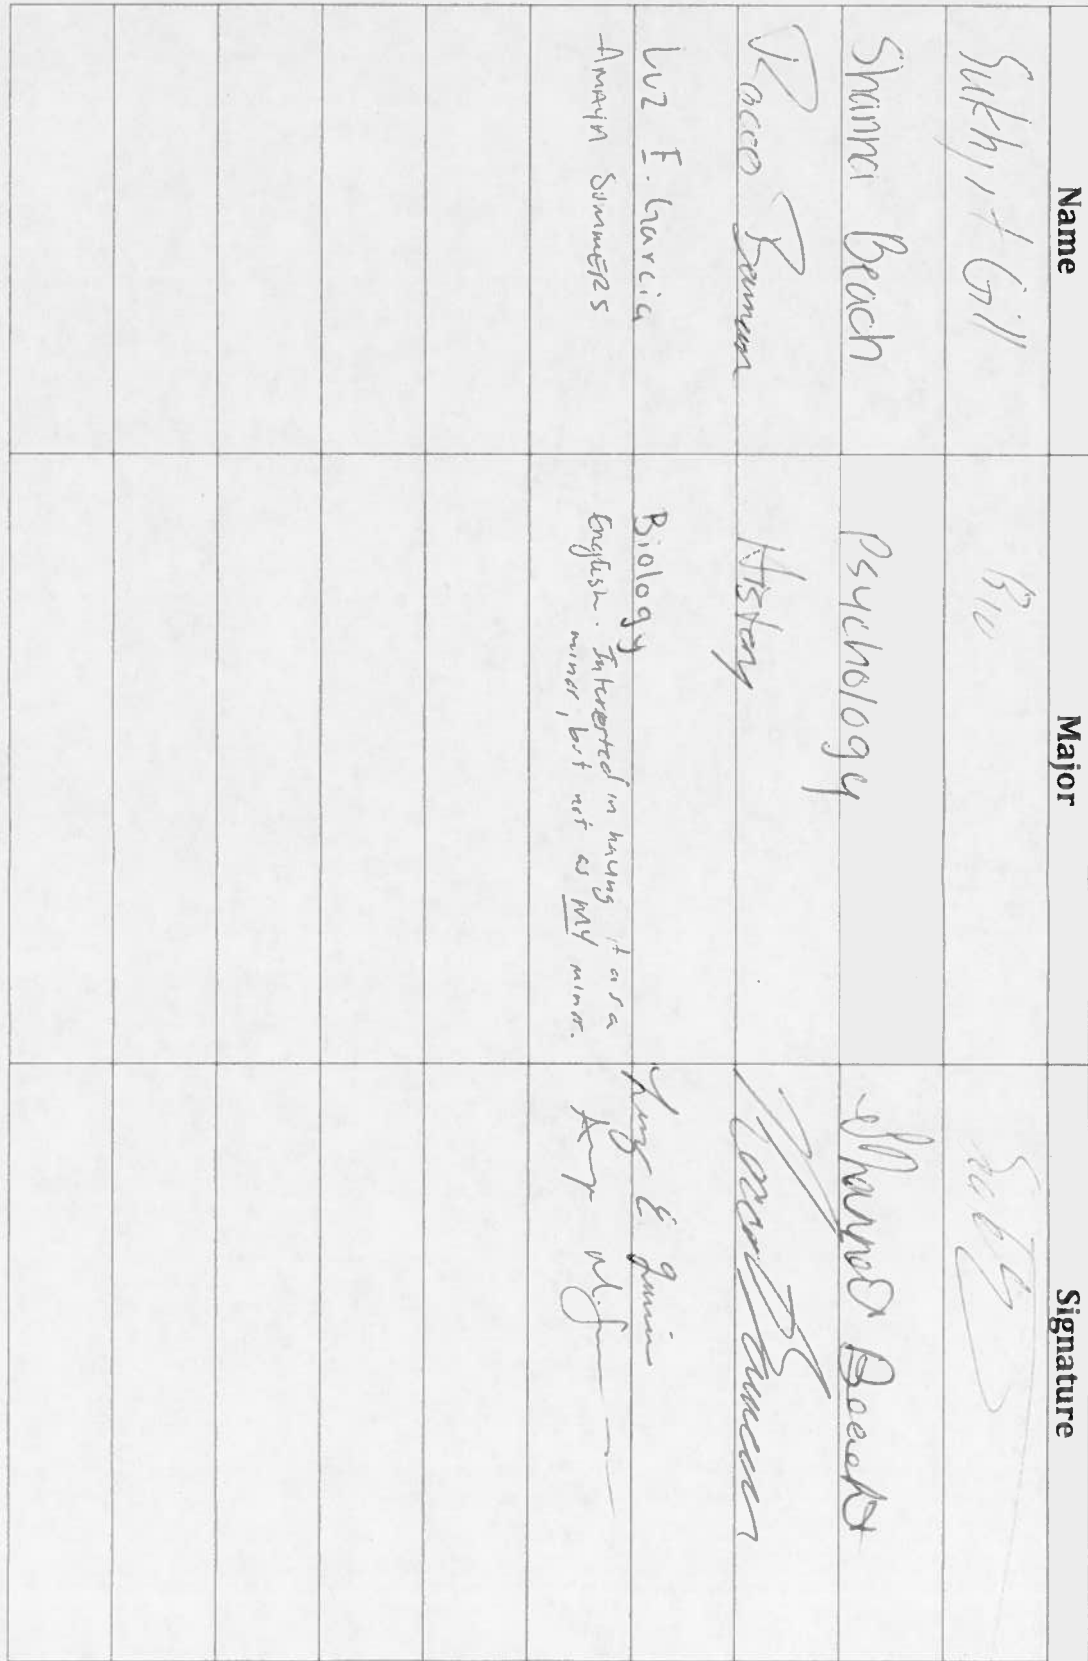 Name Major Signature
Gill Bio
Shanna Beach Psychology Shanna Beach
Rocco History Rocco
Luz E. Garcia Biology Luz E Garcia
Summers English. Interested in having it as a
minor, but not as MY minor.